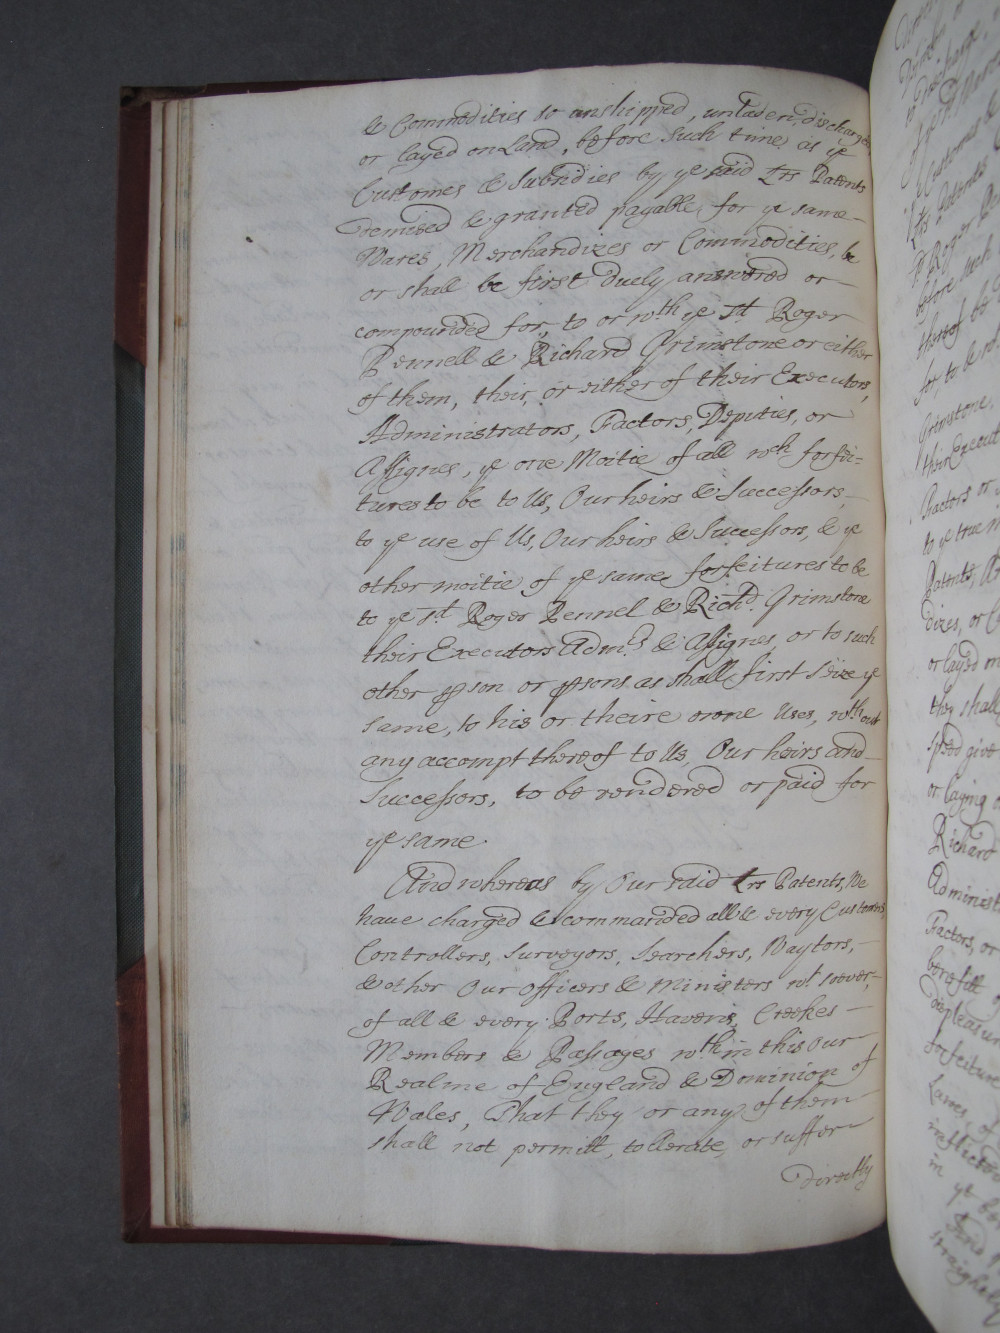 & Commodities so unshipped, unladen, discharged
or layed on Land, before such time as ye
Customes & Subsidies by ye said Lrs Patents
demised & granted payable for ye same
Wares, Merchandizes or Commodities, be
or shall be first duely answered or
compounded for, to or wth ye sd. Roger
Pennell & Richard Grimstone or either
of them, their, or either of their Executors,
Administrators, Factors, Deputies, or
Assignes, ye one Moitie of all wch forfei=
tures to be to Us, Our heirs & Successors,
to ye use of Us, Our heirs & Successors, & ye
other moitie of ye same forfeitures to be
to ye sd. Roger Pennel & Richd. Grimstone
their Executors Admrs. & Assignes, or to such
other pson or psons as shall first seize ye
same, to his or theire owne Uses, wthout
any accompt thereof to Us, Our heirs and
Successors, to be rendered or paid for
ye same.
And whereas by Our said Lrs Patents, We
haue charged & commanded all & every Customrs,
Controllers, Surveyors, Searchers, Waytors,
& other Our Officers & Ministers wt. soever,
of all & every Ports, Havens, Creekes
Members & Passages wthin this Our
Realme of England & Dominion of
Wales, That they or any of them
shall not permitt, tollerate, or suffer
directly
of ye
Customes &
Lrs Patents
Roger
before such
thereof be
for, to & wth
Grimstone,
their Execut
Factors or
to ye true
Patents,
dizes, or
or layed
they shall
give
or laying
Richard
Administ
Factors, or
benefitt
displeasure
forfeiture
Lawes of
inflicted
in ye
And
straightly